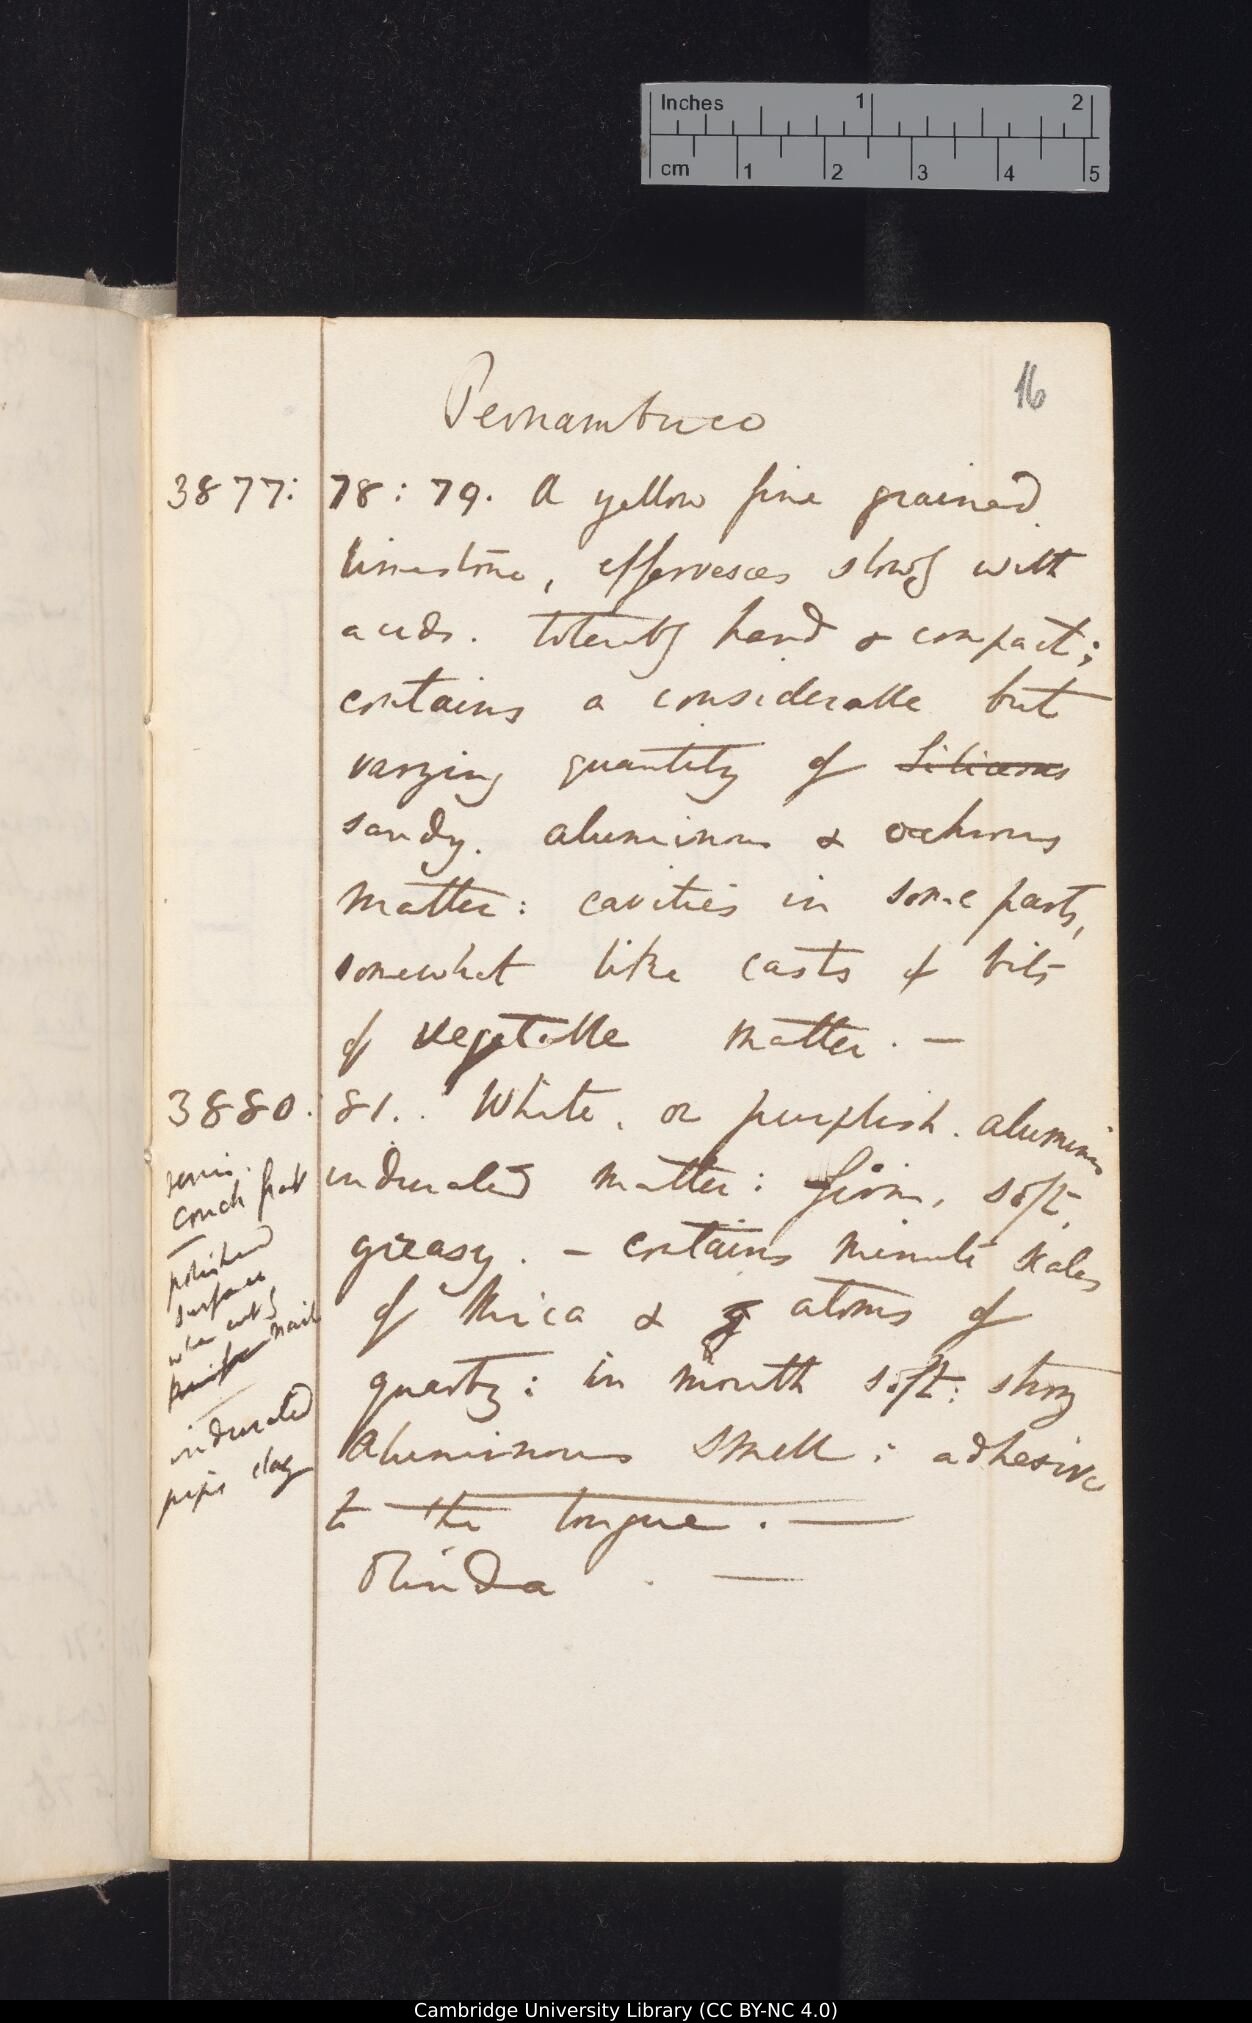 Inches 1 2
cm 1 2 3 4 5
16
Pernambuco
3877: 78: 79. A yellow fine grained
limestone, effervesces slowly with
acids. tolerably hard & compact;
contains a considerable but
varying quantity of Siliceous
sandy. aluminous & ochrous
matter: cavities in some parts,
somewhat like casts of bits
of vegetable matter. —
3880. 81.. White. or purplish. aluminous
indurated matter: firm, soft,
greasy. — contains minute scales
of Mica & atoms of
quartz: in mouth soft: strong
aluminous smell: adhesive
to the tongue. —
Olinda . —
semi.
conch fract
polished
surface
when cut by
knife nail
indurated
pipe clay
Cambridge University Library (CC BY-NC 4.0)